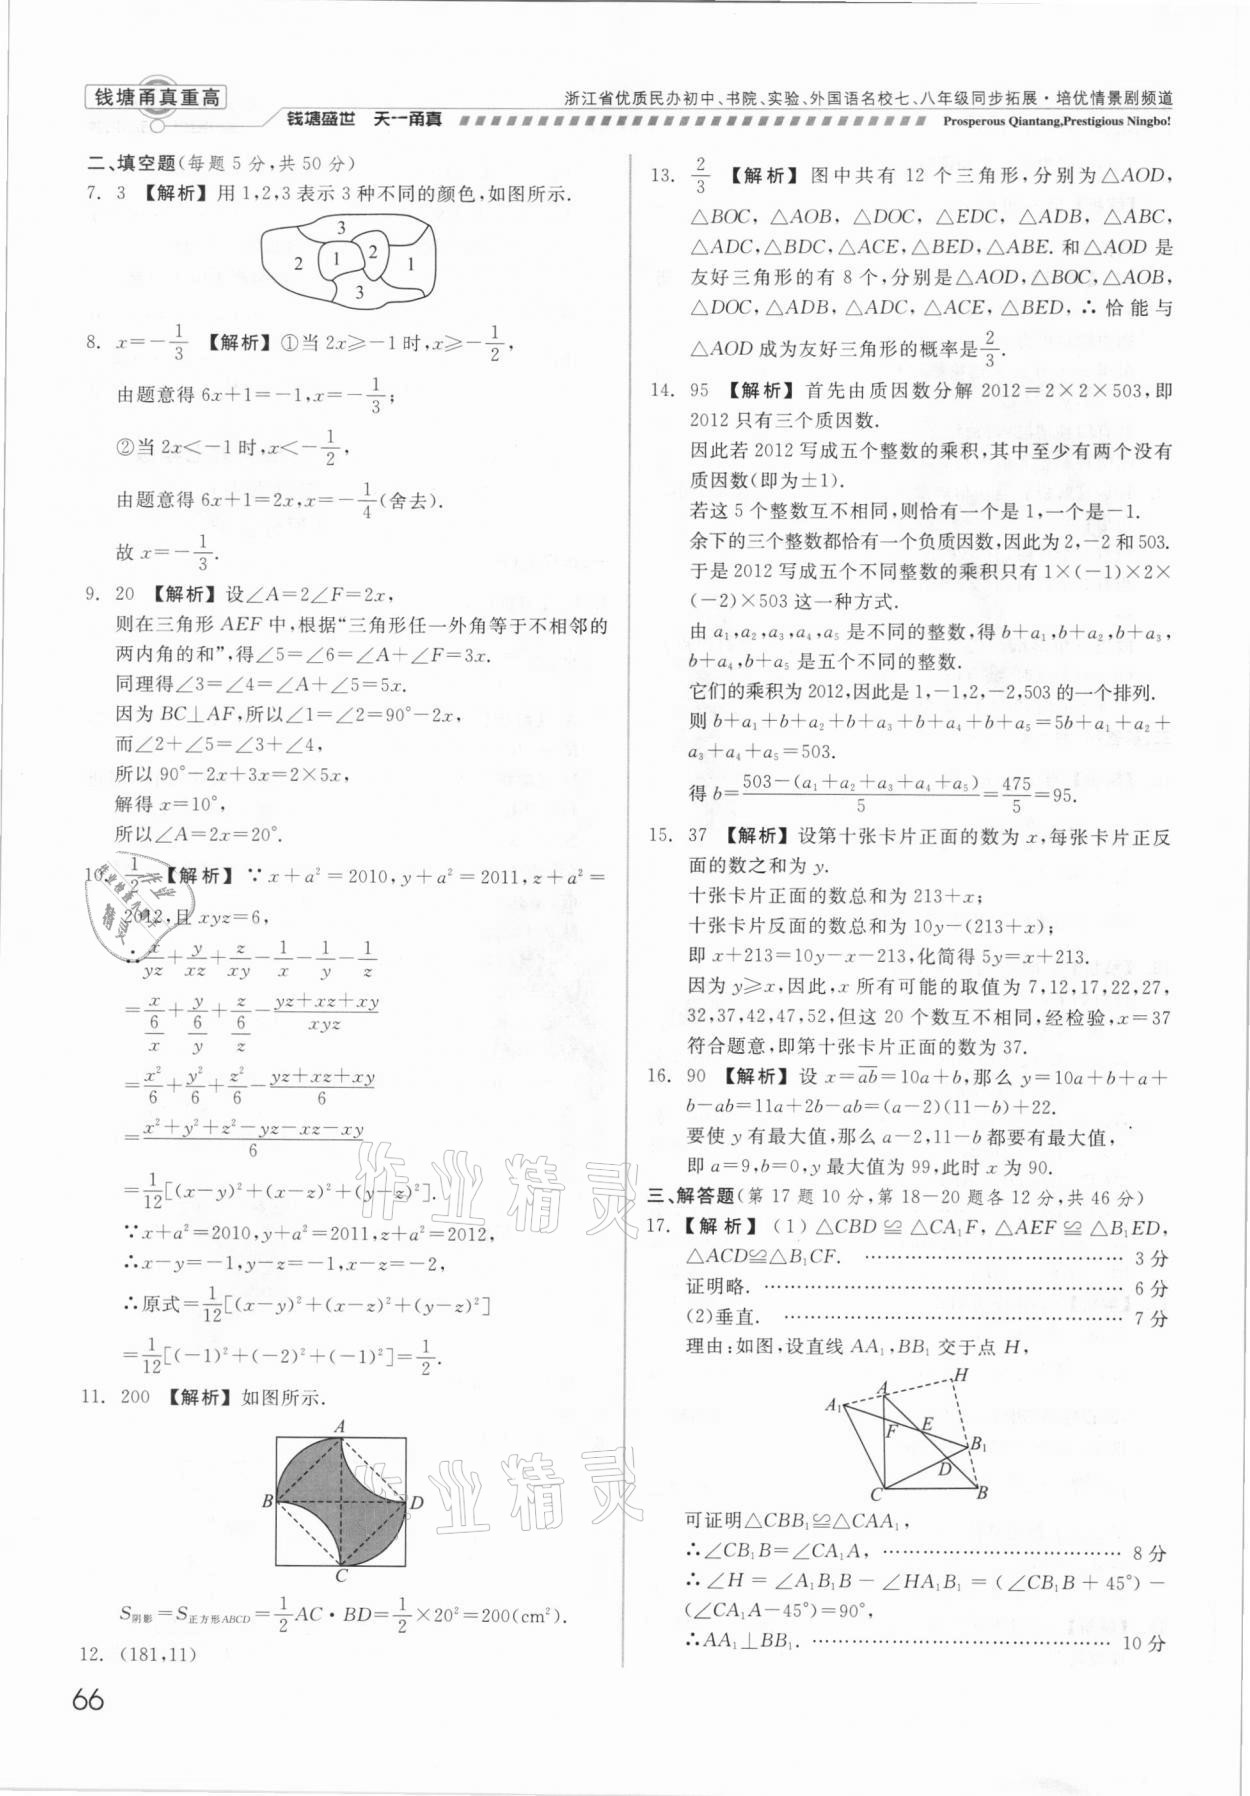 钱塘甬真重高
浙江省优质民办初中、书院、实验、外国语名校七、八年级同步拓展·培优情景剧频道
钱塘盛世 天一甬真
Prosperous Qiantang,Prestigious Ningbo!
二、填空题(每题5分,共50分)
7. 3 【解析】用1,2,3表示3种不同的颜色,如图所示.
3
2 1 2 1
3
8. x=-1/3 【解析】①当2x⩾-1时,x⩾-1/2,
由题意得6x+1=-1,x=-1/3;
②当2x<-1时,x<-1/2,
由题意得6x+1=2x,x=-1/4(舍去).
故x=-1/3.
9. 20 【解析】设∠A=2∠F=2x,
则在三角形AEF中,根据“三角形任一外角等于不相邻的
两内角的和”,得∠5=∠6=∠A+∠F=3x.
同理得∠3=∠4=∠A+∠5=5x.
因为BC⊥AF,所以∠1=∠2=90°-2x,
而∠2+∠5=∠3+∠4,
所以90°-2x+3x=2×5x,
解得x=10°,
所以∠A=2x=20°.
10. 1/2 【解析】∵x+a²=2010,y+a²=2011,z+a²=
2012,且xyz=6,
∴x/yz+y/xz+z/xy-1/x-1/y-1/z
=x/(6/x)+y/(6/y)+z/(6/z)-(yz+xz+xy)/xyz
=x²/6+y²/6+z²/6-(yz+xz+xy)/6
=(x²+y²+z²-yz-xz-xy)/6
=1/12[(x-y)²+(x-z)²+(y-z)²].
∵x+a²=2010,y+a²=2011,z+a²=2012,
∴x-y=-1,y-z=-1,x-z=-2,
∴原式=1/12[(x-y)²+(x-z)²+(y-z)²]
=1/12[(-1)²+(-2)²+(-1)²]=1/2.
11. 200 【解析】如图所示.
A
B D
C
S阴影=S正方形ABCD=1/2AC·BD=1/2×20²=200(cm²).
12. (181,11)
66
13. 2/3 【解析】图中共有12个三角形,分别为△AOD,
△BOC,△AOB,△DOC,△EDC,△ADB,△ABC,
△ADC,△BDC,△ACE,△BED,△ABE.和△AOD是
友好三角形的有8个,分别是△AOD,△BOC,△AOB,
△DOC,△ADB,△ADC,△ACE,△BED,∴恰能与
△AOD成为友好三角形的概率是2/3.
14. 95 【解析】首先由质因数分解2012=2×2×503,即
2012只有三个质因数.
因此若2012写成五个整数的乘积,其中至少有两个没有
质因数(即为±1).
若这5个整数互不相同,则恰有一个是1,一个是-1.
余下的三个整数都恰有一个负质因数,因此为2,-2和503.
于是2012写成五个不同整数的乘积只有1×(-1)×2×
(-2)×503这一种方式.
由a₁,a₂,a₃,a₄,a₅是不同的整数,得b+a₁,b+a₂,b+a₃,
b+a₄,b+a₅是五个不同的整数.
它们的乘积为2012,因此是1,-1,2,-2,503的一个排列.
则b+a₁+b+a₂+b+a₃+b+a₄+b+a₅=5b+a₁+a₂+
a₃+a₄+a₅=503.
得b=(503-(a₁+a₂+a₃+a₄+a₅))/5=475/5=95.
15. 37 【解析】设第十张卡片正面的数为x,每张卡片正反
面的数之和为y.
十张卡片正面的数总和为213+x;
十张卡片反面的数总和为10y-(213+x);
即x+213=10y-x-213,化简得5y=x+213.
因为y⩾x,因此,x所有可能的取值为7,12,17,22,27,
32,37,42,47,52,但这20个数互不相同,经检验,x=37
符合题意,即第十张卡片正面的数为37.
16. 90 【解析】设x=a̅b̅=10a+b,那么y=10a+b+a+
b-ab=11a+2b-ab=(a-2)(11-b)+22.
要使y有最大值,那么a-2,11-b都要有最大值,
即a=9,b=0,y最大值为99,此时x为90.
三、解答题(第17题10分,第18-20题各12分,共46分)
17. 【解析】(1)△CBD≌△CA₁F,△AEF≌△B₁ED,
△ACD≌△B₁CF. …………………………… 3分
证明略. ………………………………………… 6分
(2)垂直. ……………………………………… 7分
理由:如图,设直线AA₁,BB₁交于点H,
H
A
A₁
F E
B₁
D
C B
可证明△CBB₁≌△CAA₁,
∴∠CB₁B=∠CA₁A, ………………………… 8分
∴∠H=∠A₁B₁B-∠HA₁B₁=(∠CB₁B+45°)-
(∠CA₁A-45°)=90°,
∴AA₁⊥BB₁. ………………………………… 10分
作业精灵
作业精灵